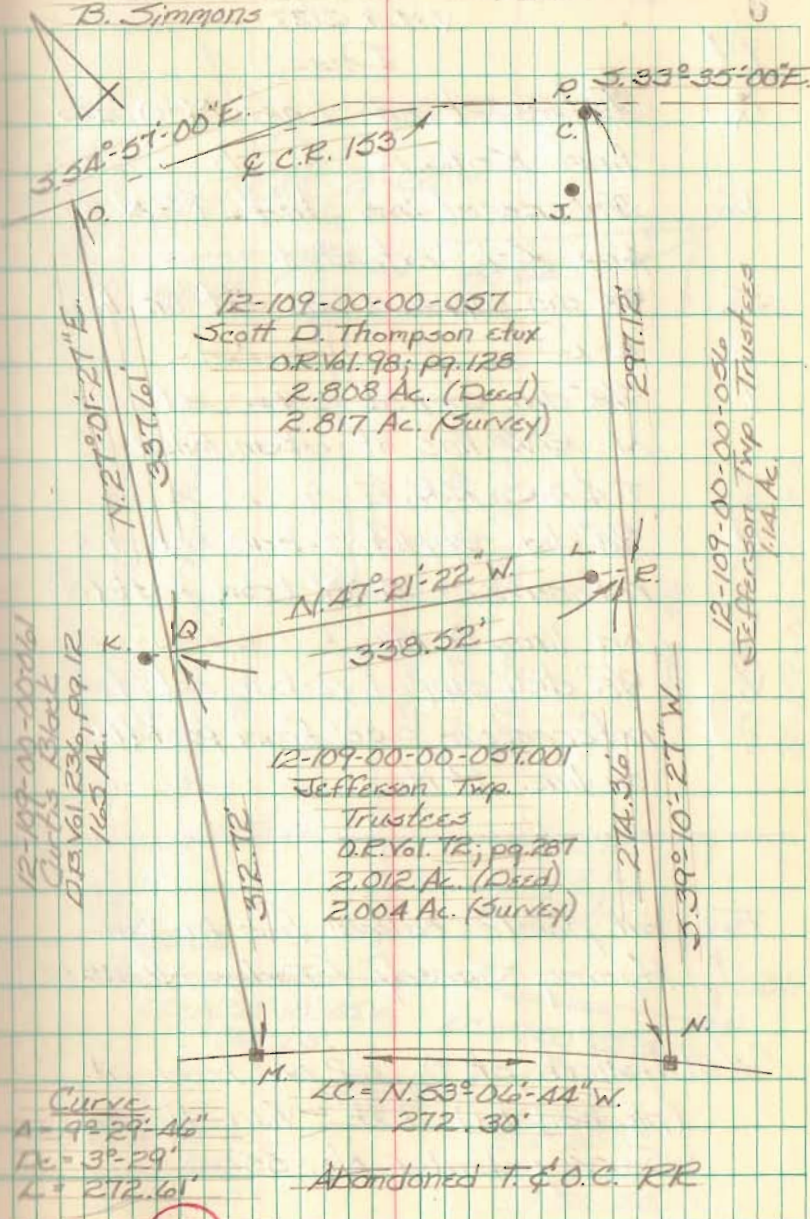 B. Simmons
P.
S.33°-35'-00"E.
C.
S.54°-57'-00"E.
₵ C.R. 153
O.
J.
12-109-00-00-057
Scott D. Thompson etux
O.R.Vol.98; pg.128
2.808 Ac. (Deed)
2.817 Ac. (Survey)
N.27°-01'-27"E.
337.61'
297.12'
12-109-00-00-056
Jefferson Twp. Trustees
1.14 Ac.
L.
R.
N.47°-21'-22"W.
338.52'
K.
Q
12-109-00-00-061
Curtis Black
O.R.Vol 236, pg. 12
165 Ac.
12-109-00-00-057.001
Jefferson Twp.
Trustees
O.R.Vol. 72; pg.287
2.012 Ac. (Deed)
2.004 Ac. (Survey)
312.72'
274.36'
S.39°-10'-27"W.
N.
M.
LC = N.53°-06'-44"W.
272.30'
Curve
Δ = 9°-29'-46"
Dc = 3°-29'
L = 272.61'
Abandoned T. & O.C. RR